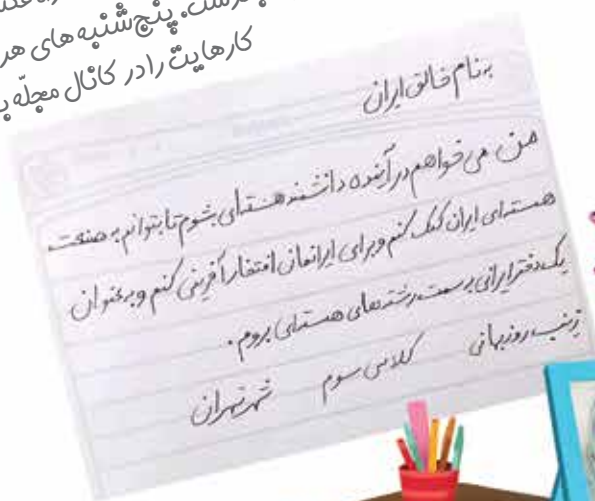 پنج‌شنبه های هر
کارهایت را در کانال مجلّه
به نام خالق ایران
من می خواهم در آینده دانشمند هسته‌ای بشوم تا بتوانم به صنعت
هسته‌ای ایران کمک کنم و برای ایرانمان افتخار آفرینی کنم و به عنوان
یک دختر ایرانی به سمت رشته‌های هسته‌ای بروم.
زینب روزبهانی کلاس سوم شهر تهران